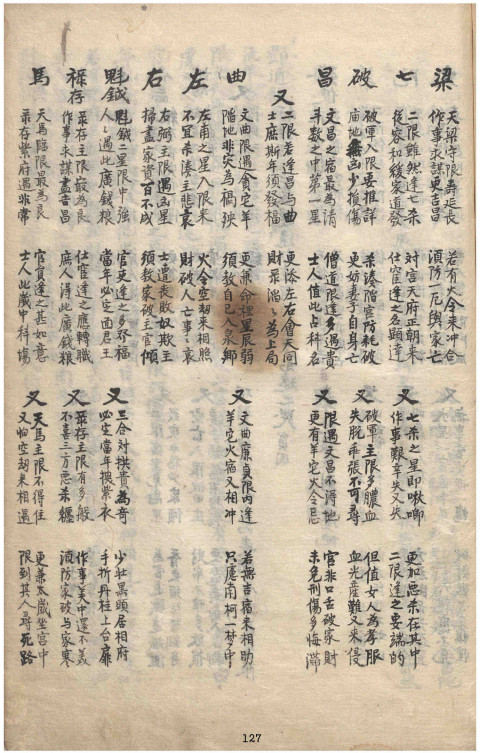 梁
天梁守限壽延長 若有火令來冲合
作事求謀更吉昌 須防一厄與家亡
七
二限雖然逢七杀 對宮天府正朝來
從容和緩家道發 仕宦逢之名顯達
又
七杀之星即啾唧 更加惡杀在其中
作事艱辛失又失 二限逢之要端的
破
破軍入限要推詳 杀湊陷宮防耗破
廟地無凶少損傷 更妨妻子自身亡
又
破軍主限多膿血 但值女人為孝服
失脫乖張不可尋 血光產難又來侵
昌
文昌之宿最為清 僧道限逢多遇貴
斗數之中第一星 士人值此占科名
又
限遇文昌不得地 官非口舌破家財
更有羊陀火令忌 未免刑傷多悔滯
又
二限若逢昌與曲 更添左右會天同
士庶斯年須發福 財祿滔滔為上局
曲
文曲限遇貪陀羊 更兼命裡星辰弱
陷地非灾為禍殃 須教自己入泉鄉
又
文曲廉貞限內逢 若無吉宿來相助
羊陀火宿又相冲 只應南柯一梦中
左
左甫之星入限來 火令空刼來相照
不宜杀湊主悲哀 財破人亡事事哀
右
右弼主限遇凶星 士遭喪敗奴欺主
掃盡家資百不成 須教家破主官傾
魁鉞
魁鉞二星限中強 官吏逢之多發福
人人遇此廣錢粮 當年必定面君王
又
三合对拱貴為奇 少壯黑頭居相府
必定當年換紫衣 手折丹桂上台扉
祿存
祿存主限最為良 仕宦逢之應轉職
作事求謀盡吉昌 庶人得此廣錢粮
又
祿存主限有多般 作事美中還不美
不喜三方惡杀纏 須防家破與家寒
馬
天馬臨限最為良 官員逢之甚如意
祿存紫府遇非常 士人此歲中科場
又
天馬主限不得住 更兼太歲坐宮中
又怕空刼來相遇 限到其人尋死路
127